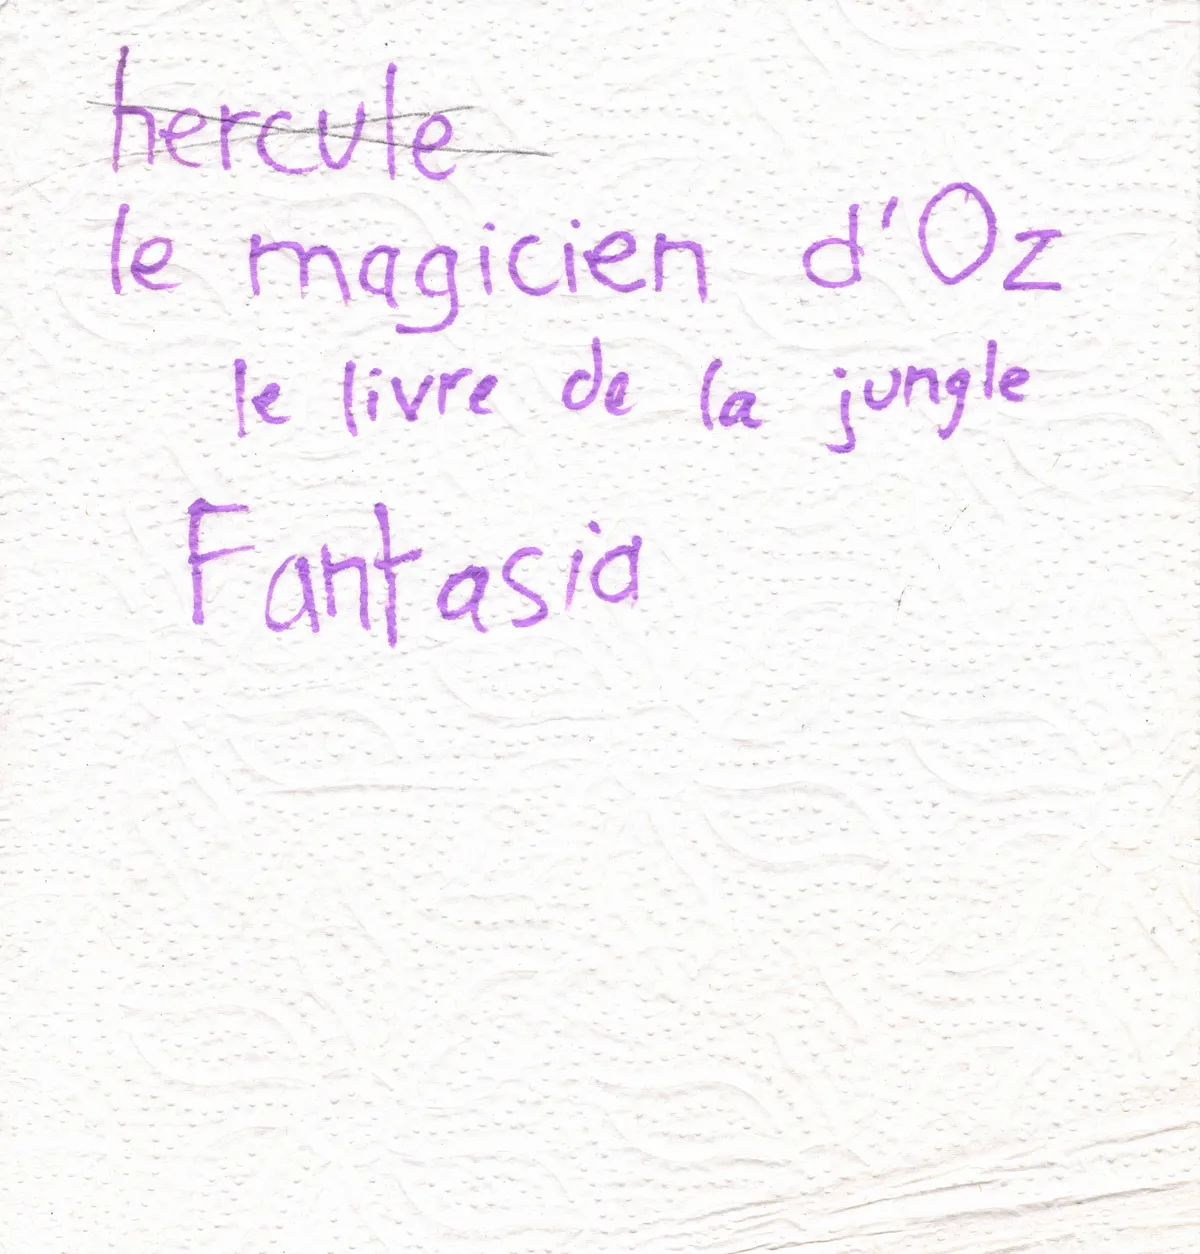 hercule
le magicien d'Oz
le livre de la jungle
Fantasia